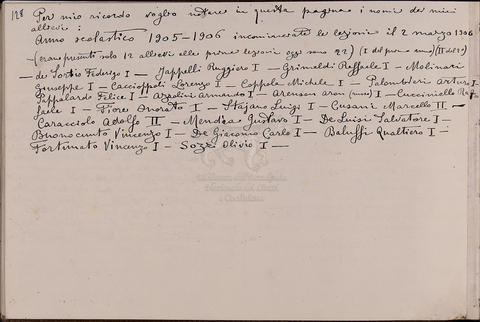 128 Per mio ricordo voglio notare in questa pagina i nomi dei miei
allievi:
Anno scolastico 1905-1906 incominciate le lezioni il 2 marzo 1906
- (erano presenti solo 12 allievi alle prime lezioni oggi sono 22) (I del primo anno) (II del 2º)
- de Sortis Federigo I - Jappelli Ruggiero I - Grimaldi Raffaele I - Molinari
Giuseppe I - Caccioppoli Lorenzo I - Coppola Michele I - Palombieri Arturo I
Pappalardo Felice I - Azzolini Armando I - Arenson Aron (russo) I - Cucciniello Raf-
faele I - Fiore Onorato I - Stajano Luigi I - Cusani Marcello II -
Caracciolo Adolfo II - Mendia Gustavo I - De Luisi Salvatore I -
Buonocunto Vincenzo I - De Giacomo Carlo I - Baluffi Qualtiero I -
Fortunato Vincenzo I - Olivio I -